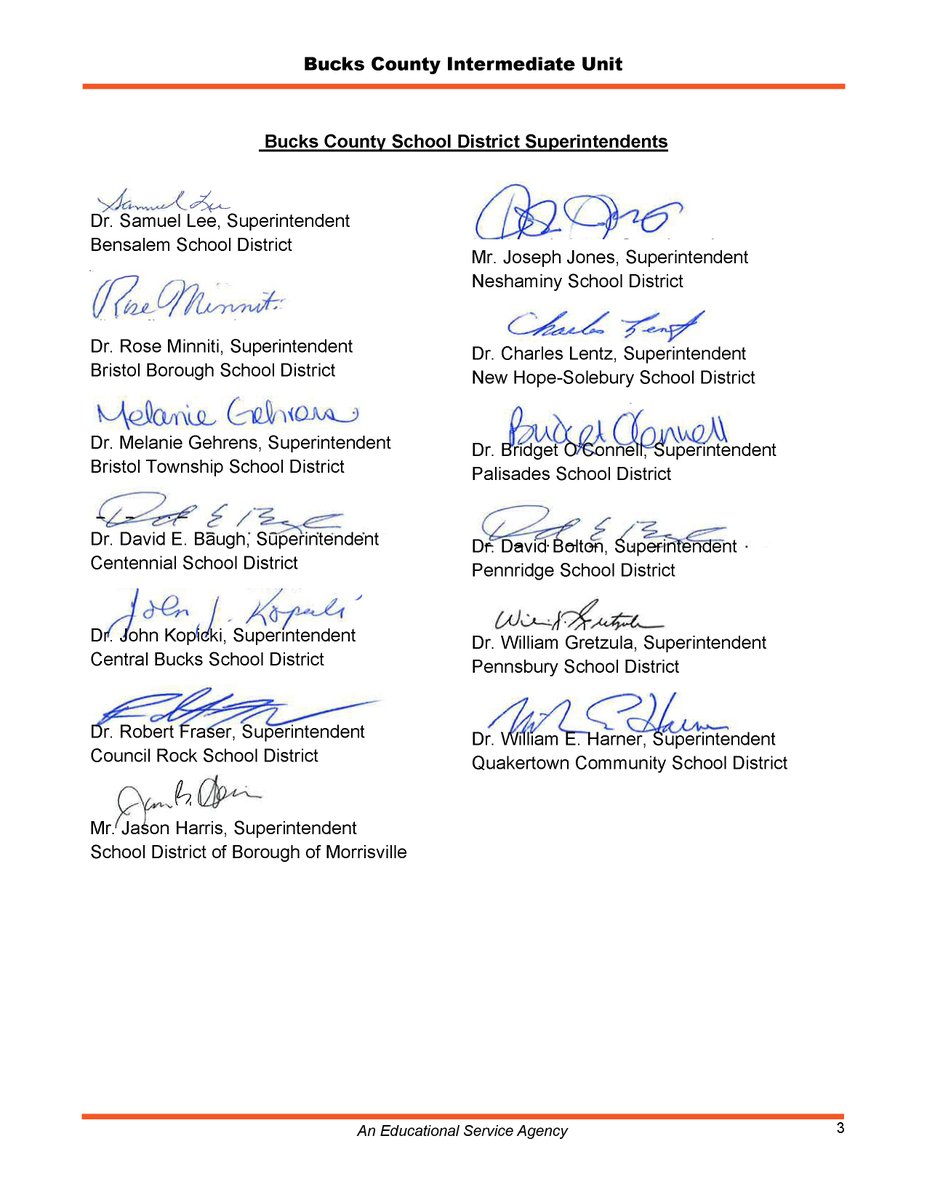 Bucks County Intermediate Unit
Bucks County School District Superintendents
Samuel Lee
Dr. Samuel Lee, Superintendent
Bensalem School District
Rose Minniti
Dr. Rose Minniti, Superintendent
Bristol Borough School District
Melanie Gehrens
Dr. Melanie Gehrens, Superintendent
Bristol Township School District
Dr. David E. Baugh, Superintendent
Centennial School District
John J. Kopicki
Dr. John Kopicki, Superintendent
Central Bucks School District
Dr. Robert Fraser, Superintendent
Council Rock School District
Mr. Jason Harris, Superintendent
School District of Borough of Morrisville
Mr. Joseph Jones, Superintendent
Neshaminy School District
Charles Lentz
Dr. Charles Lentz, Superintendent
New Hope-Solebury School District
Bridget O'Connell
Dr. Bridget O'Connell, Superintendent
Palisades School District
Dr. David Bolton, Superintendent
Pennridge School District
Dr. William Gretzula, Superintendent
Pennsbury School District
Dr. William E. Harner, Superintendent
Quakertown Community School District
An Educational Service Agency
3